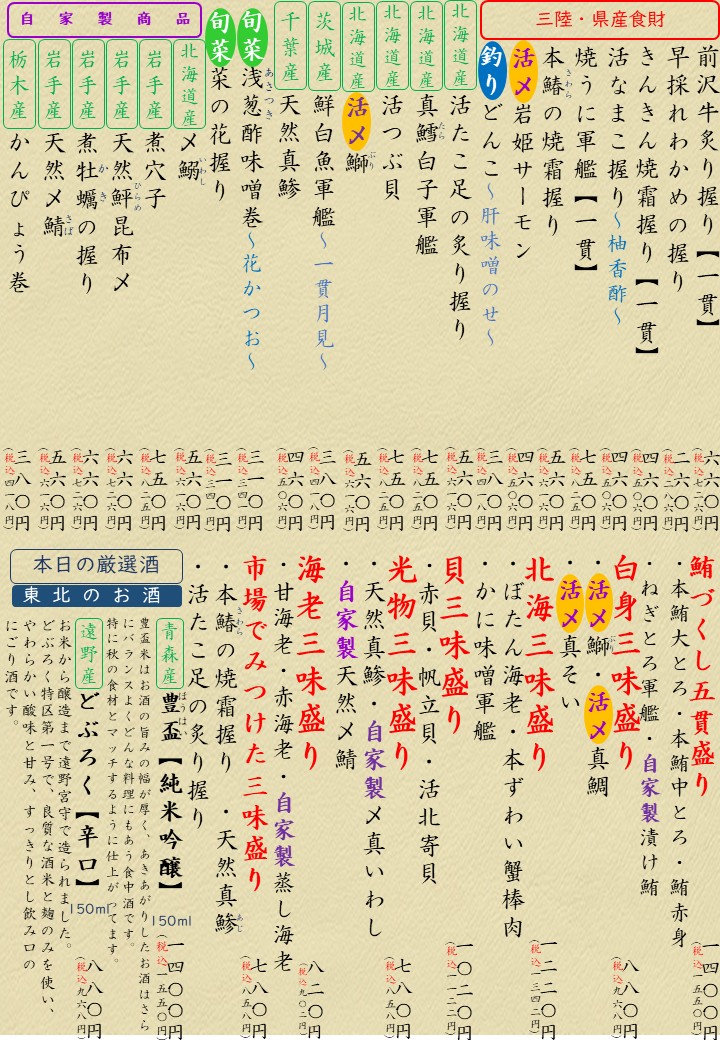 三陸・県産食財
前沢牛炙り握り【一貫】
六六〇円
(税込七二六円)
早採れわかめの握り
二六〇円
(税込二八六円)
きんきん焼霜握り【一貫】
四六〇円
(税込五〇六円)
活なまこ握り～柚香酢～
四六〇円
(税込五〇六円)
焼うに軍艦【一貫】
七五〇円
(税込八二五円)
本鰆の焼霜握り
さわら
五六〇円
(税込六一六円)
活〆岩姫サーモン
四六〇円
(税込五〇六円)
釣りどんこ～肝味噌のせ～
三八〇円
(税込四一八円)
北海道産
活たこ足の炙り握り
五六〇円
(税込六一六円)
北海道産
真鱈白子軍艦
たら
七五〇円
(税込八二五円)
北海道産
活つぶ貝
七五〇円
(税込八二五円)
北海道産
活〆鰤
ぶり
五六〇円
(税込六一六円)
茨城産
鮮白魚軍艦～一貫月見～
三八〇円
(税込四一八円)
千葉産
天然真鯵
四六〇円
(税込五〇六円)
旬菜
浅葱酢味噌巻～花かつお～
あさつき
三一〇円
(税込三四一円)
旬菜
菜の花握り
三一〇円
(税込三四一円)
自家製商品
北海道産
〆鰯
いわし
五六〇円
岩手産
煮穴子
七五〇円
(税込八二五円)
岩手産
天然鮃昆布〆
ひらめ
六六〇円
(税込七二六円)
岩手産
煮牡蠣の握り
かき
六六〇円
(税込七二六円)
岩手産
天然〆鯖
さば
五六〇円
(税込六一六円)
栃木産
かんぴょう巻
三八〇円
(税込四一八円)
鮪づくし五貫盛り
・本鮪大とろ・本鮪中とろ・鮪赤身
・ねぎとろ軍艦・自家製漬け鮪
一四〇〇円
(税込一五五〇円)
白身三味盛り
・活〆鰤・活〆真鯛
ぶり
・活〆真そい
八八〇円
(税込九六八円)
北海三味盛り
・ぼたん海老・本ずわい蟹棒肉
・かに味噌軍艦
一二二〇円
(税込一三四二円)
貝三味盛り
・赤貝・帆立貝・活北寄貝
一〇二〇円
(税込一一二二円)
光物三味盛り
・天然真鯵・自家製〆真いわし
・自家製天然〆鯖
七八〇円
(税込八五八円)
海老三味盛り
・甘海老・赤海老・自家製蒸し海老
八二〇円
(税込九〇二円)
市場でみつけた三味盛り
・本鰆の焼霜握り ・天然真鯵
さわら
あじ
・活たこ足の炙り握り
七八〇円
(税込八五八円)
本日の厳選酒
東北のお酒
青森産
豊盃【純米吟醸】
ほうはい
150ml
一四〇〇円
(税込一五五〇円)
豊盃米はお酒の旨みの幅が厚く、あきあがりしたお酒はさら
にバランスよくどんな料理にもあう食中酒です。
特に秋の食材とマッチするように仕上がってます。
遠野産
どぶろく【辛口】
150ml
八八〇円
(税込九六八円)
お米から醸造まで遠野宮守で造られました。
どぶろく特区第一号で、良質な酒米と麹のみを使い、
やわらかい酸味と甘み、すっきりとし飲み口の
にごり酒です。